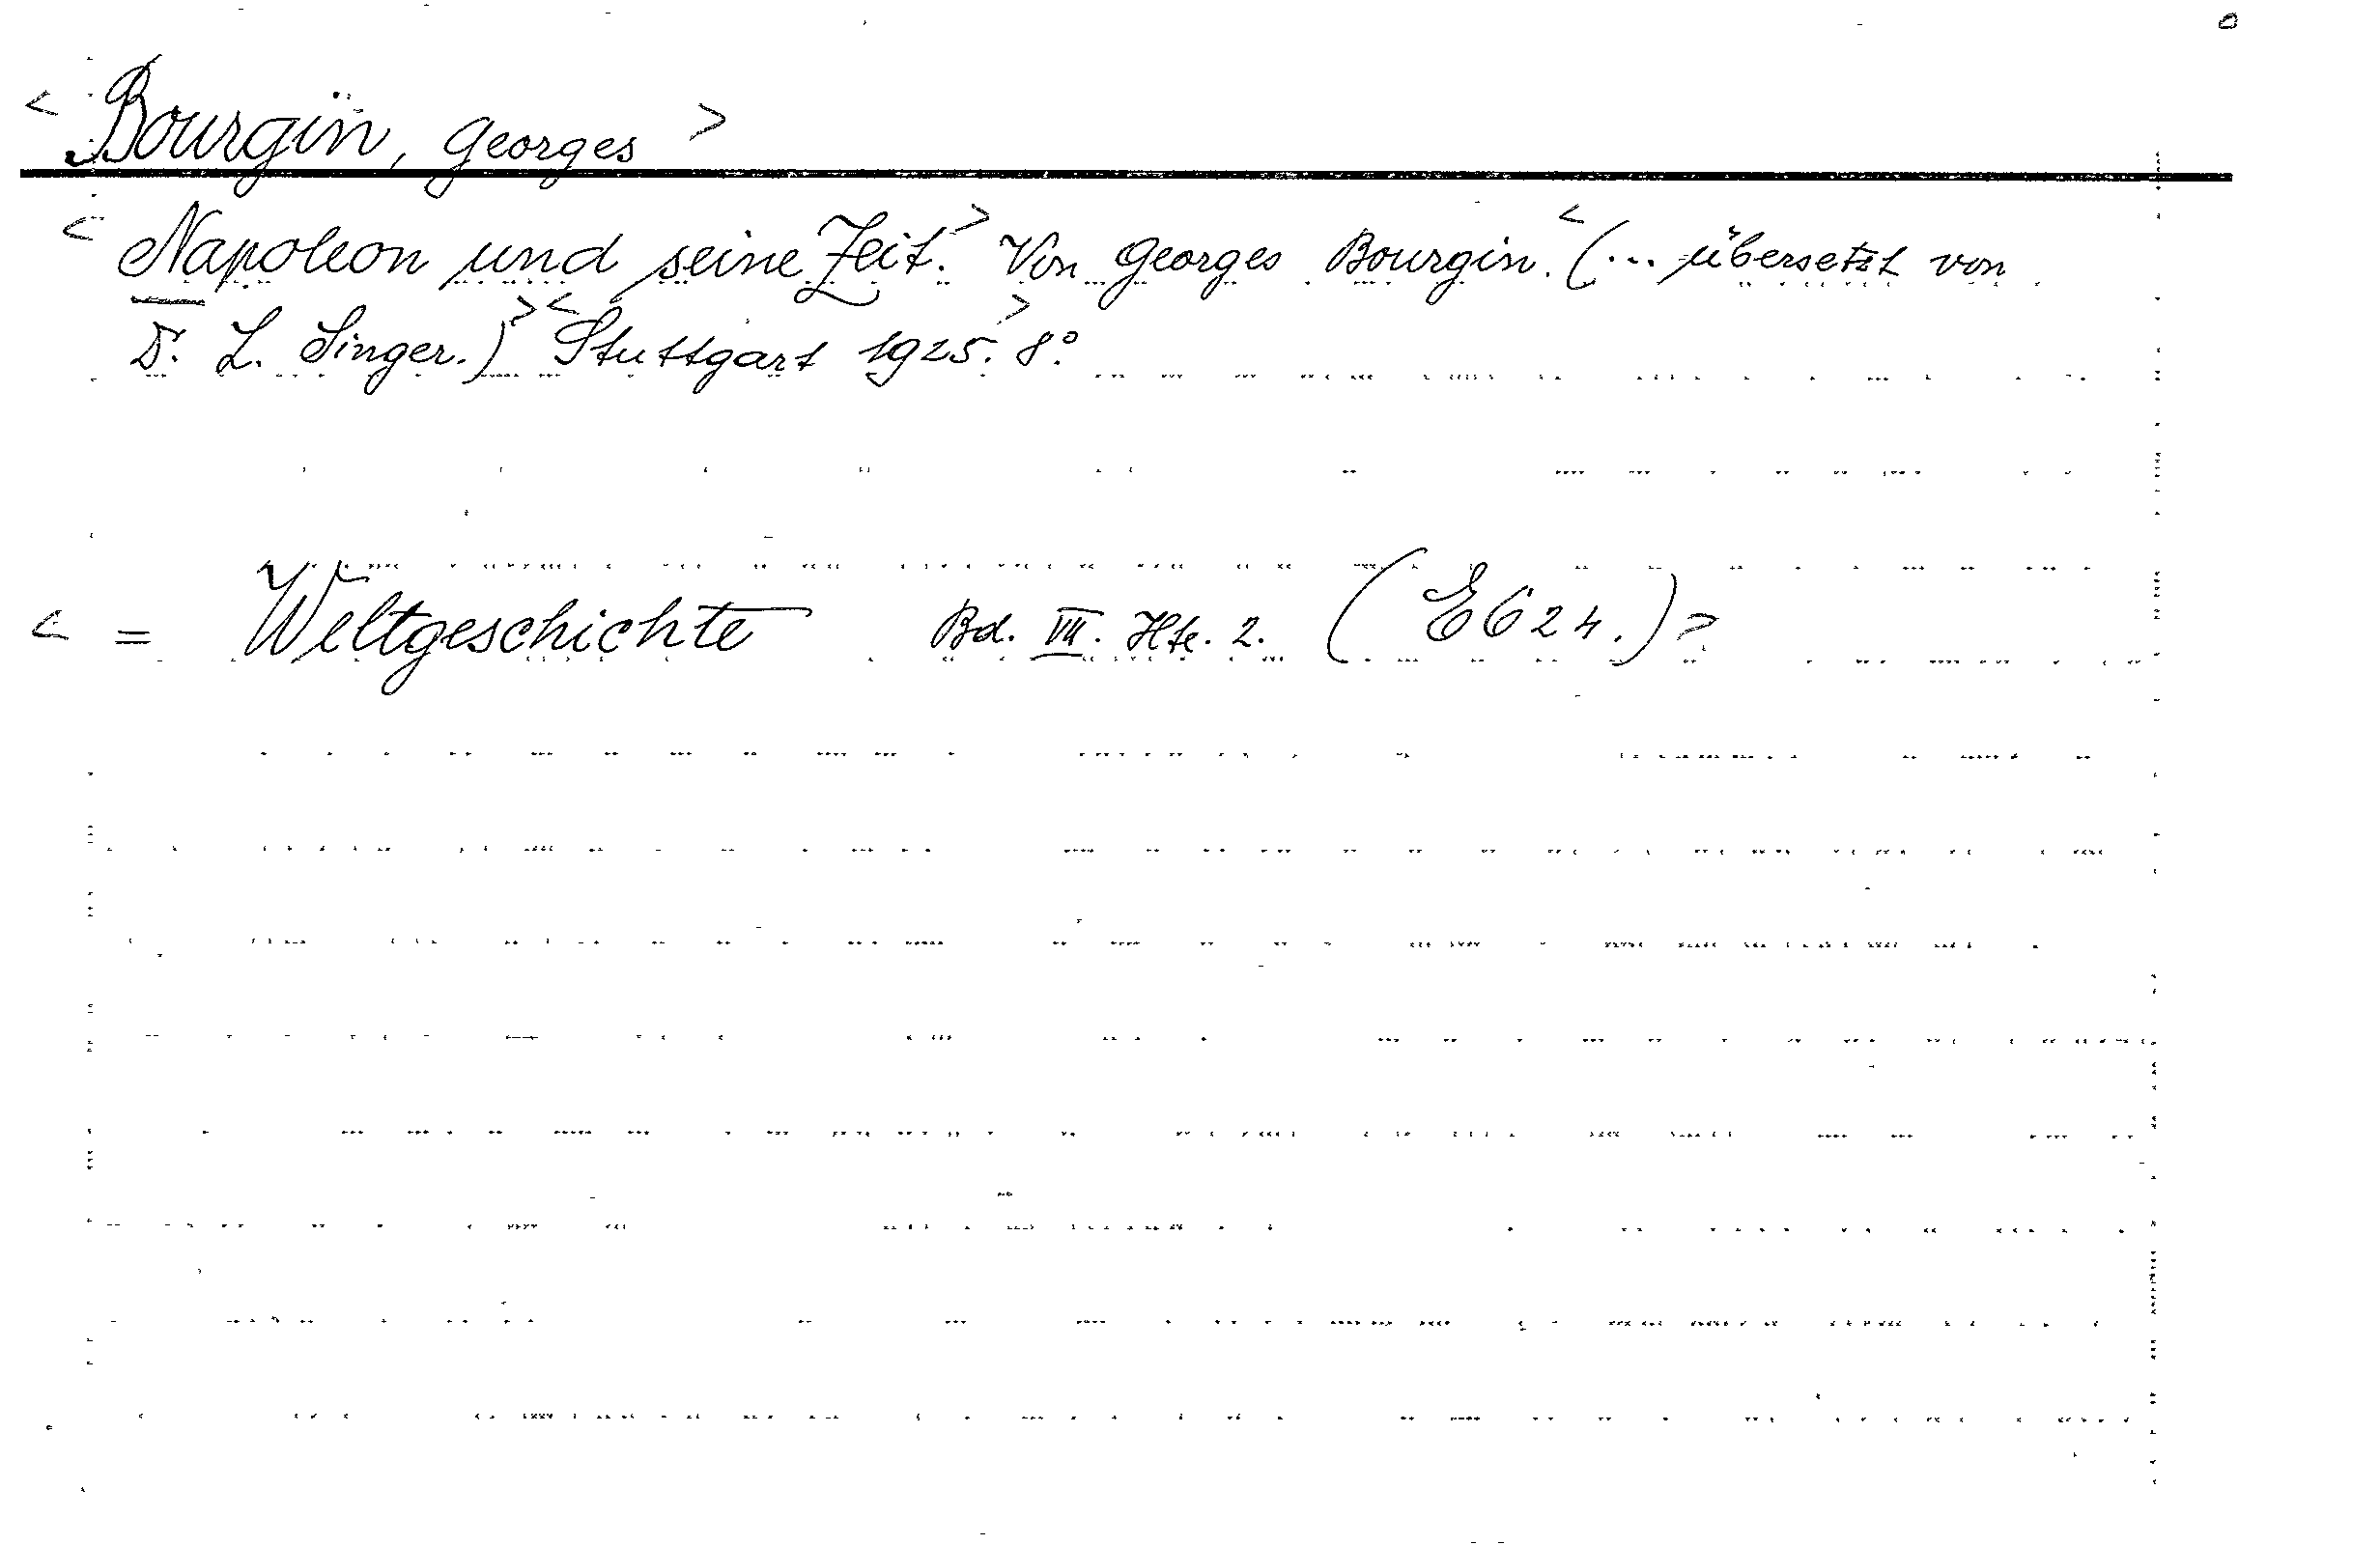 < Bourgin, Georges >
< Napoleon und seine Zeit. > Von Georges Bourgin. < (... übersetzt von
D. L. Singer.) > < Stuttgart 1925. > 8°.
< = Weltgeschichte Bd. VII. Hfe. 2. (E624.) >